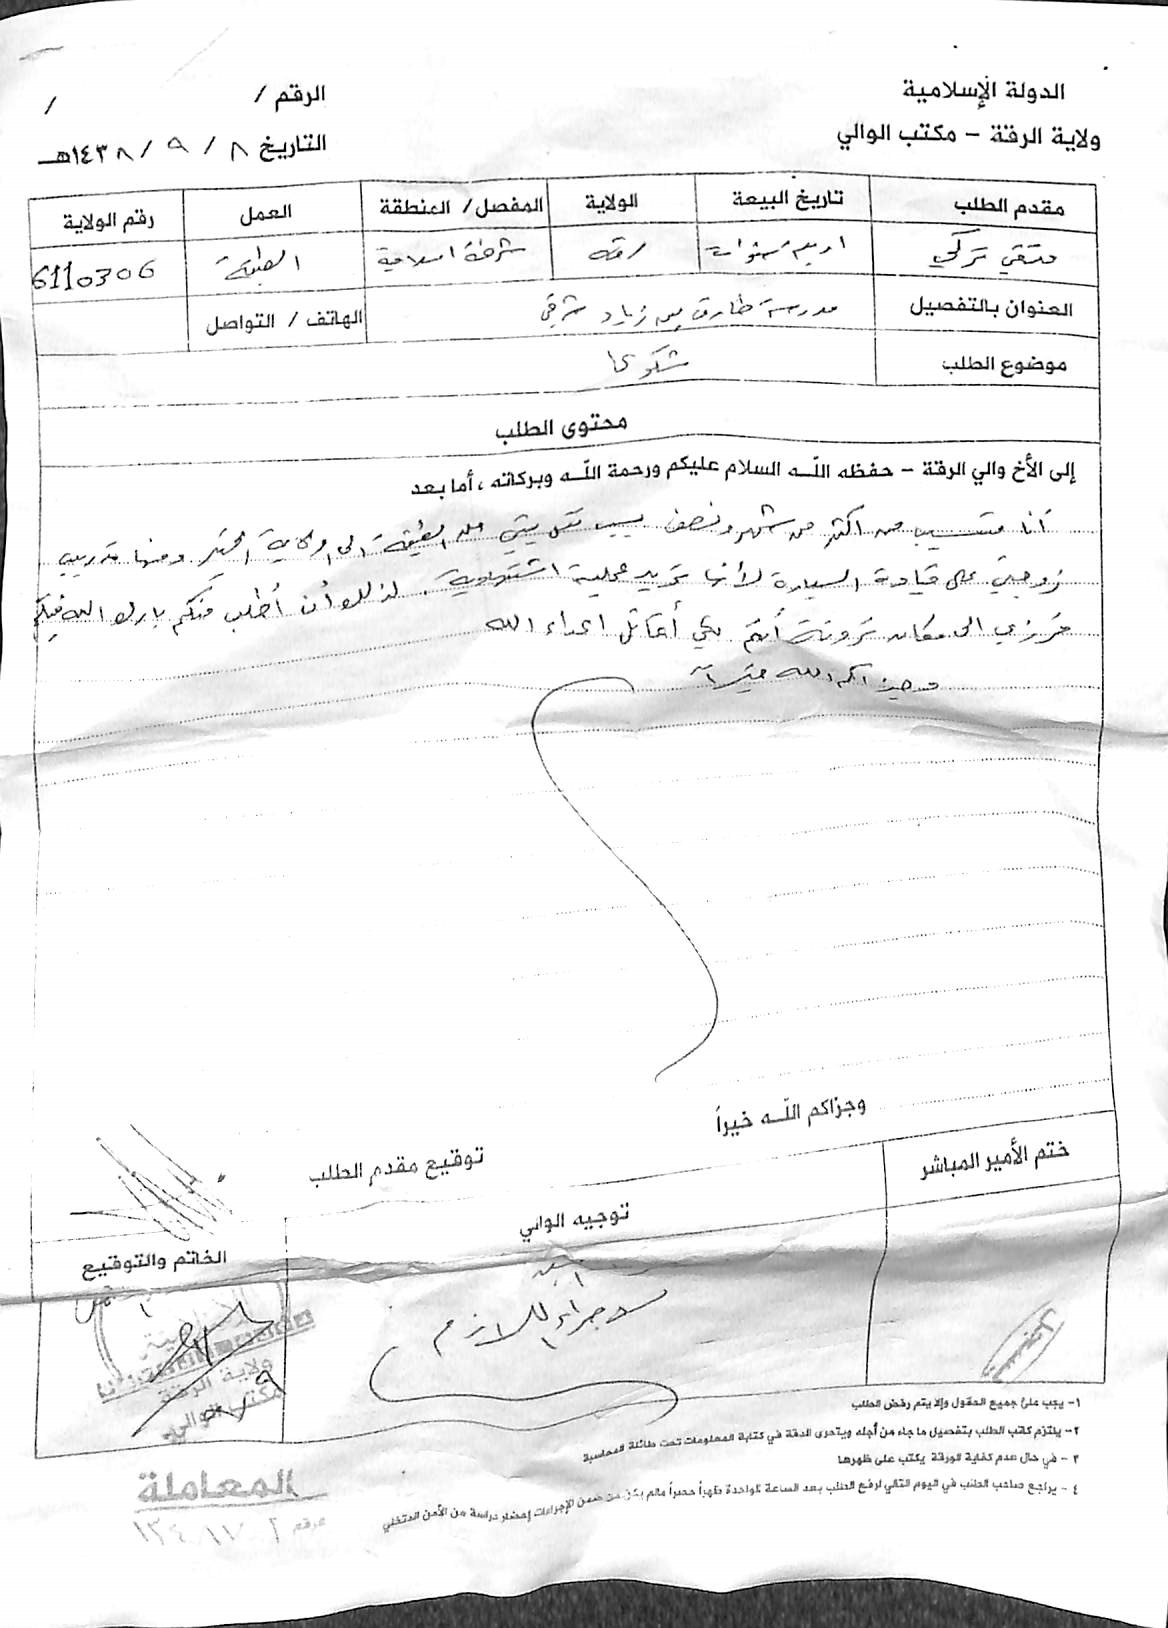 الدولة الإسلامية
ولاية الرقة - مكتب الوالي
الرقم / /
التاريخ ٨ / ٩ / ١٤٣٨هـ
مقدم الطلب تاريخ البيعة الولاية المفصل/ المنطقة العمل رقم الولاية
تركي رقة شرطة اسلامية الطبقة 6110306
العنوان بالتفصيل مدرسة طارق بن زياد شرقي الهاتف / التواصل
موضوع الطلب شكوى
محتوى الطلب
إلى الأخ والي الرقة - حفظه اللّه السلام عليكم ورحمة اللّه وبركاته ، أما بعد
أنا من اكثر من شهر ونصف بسبب من الى ولاية ومنها تدريب
زوجتي على قيادة السيارة لأنها تريد عملية استشهادية . لذلك أن أطلب منكم بارك الله فيكم
فرزي الى مكان ترونه أنتم لكي أقاتل اعداء الله
وجزاكم الله خيراً
وجزاكم اللّه خيراً
توقيع مقدم الطلب
ختم الأمير المباشر
توجيه الوالي
الخاتم والتوقيع
لاجراء اللازم
ولاية الرقة
مكتب الوالي
١- يجب على جميع الحقول وإلا يتم رفض الطلب
٢- يلتزم كاتب الطلب بتفصيل ما جاء من أجله ويتحرى الدقة في كتابة المعلومات تحت طائلة المحاسبة
٣- في حال عدم كفاية الورقة يكتب على ظهرها
٤- يراجع صاحب الطلب في اليوم التالي لرفع الطلب بعد الساعة الواحدة ظهراً حصراً مالم يكن من ضمن الإجراءات إحضار دراسة من الأمن الداخلي
المعاملة